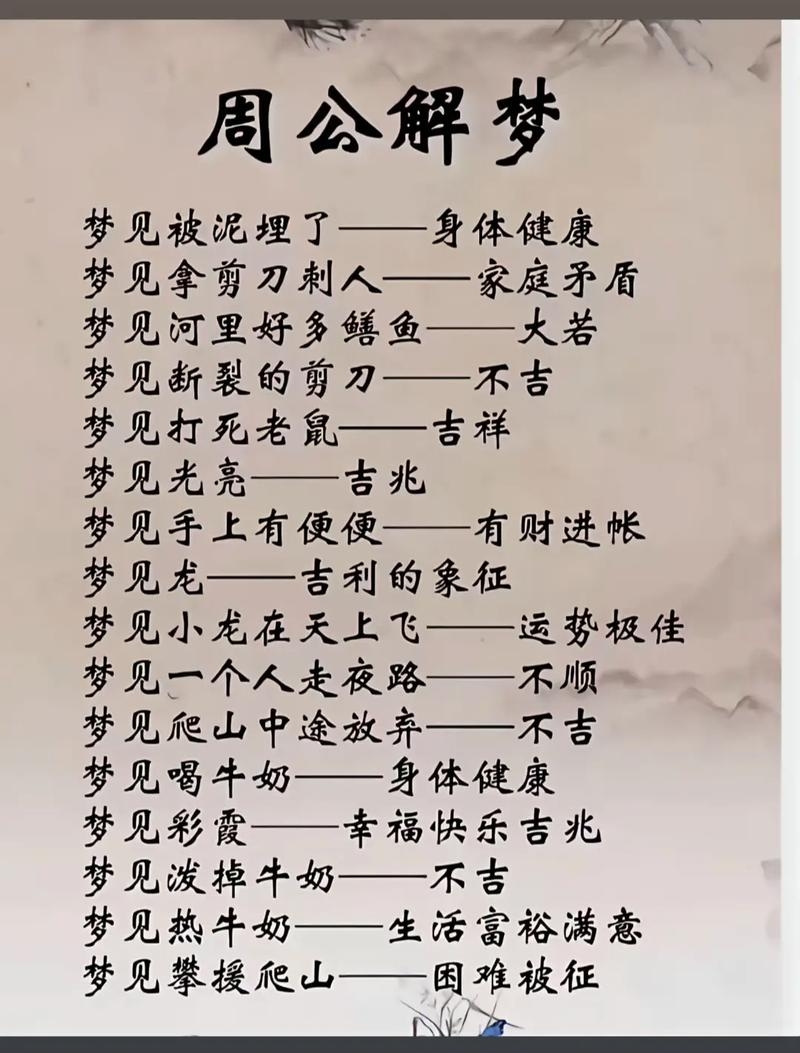 周公解梦
梦见被泥埋了——身体健康
梦见拿剪刀刺人——家庭矛盾
梦见河里好多鳝鱼——大若
梦见断裂的剪刀——不吉
梦见打死老鼠——吉祥
梦见光亮——吉兆
梦见手上有便便——有财进帐
梦见龙——吉利的象征
梦见小龙在天上飞——运势极佳
梦见一个人走夜路——不顺
梦见爬山中途放弃——不吉
梦见喝牛奶——身体健康
梦见彩霞——幸福快乐吉兆
梦见泼掉牛奶——不吉
梦见热牛奶——生活富裕满意
梦见攀援爬山——困难被征